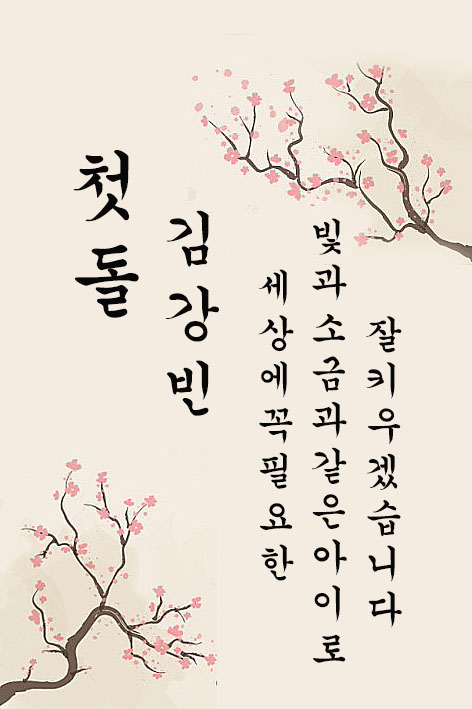 첫돌
김강빈
세상에꼭필요한
빛과소금과같은아이로
잘키우겠습니다